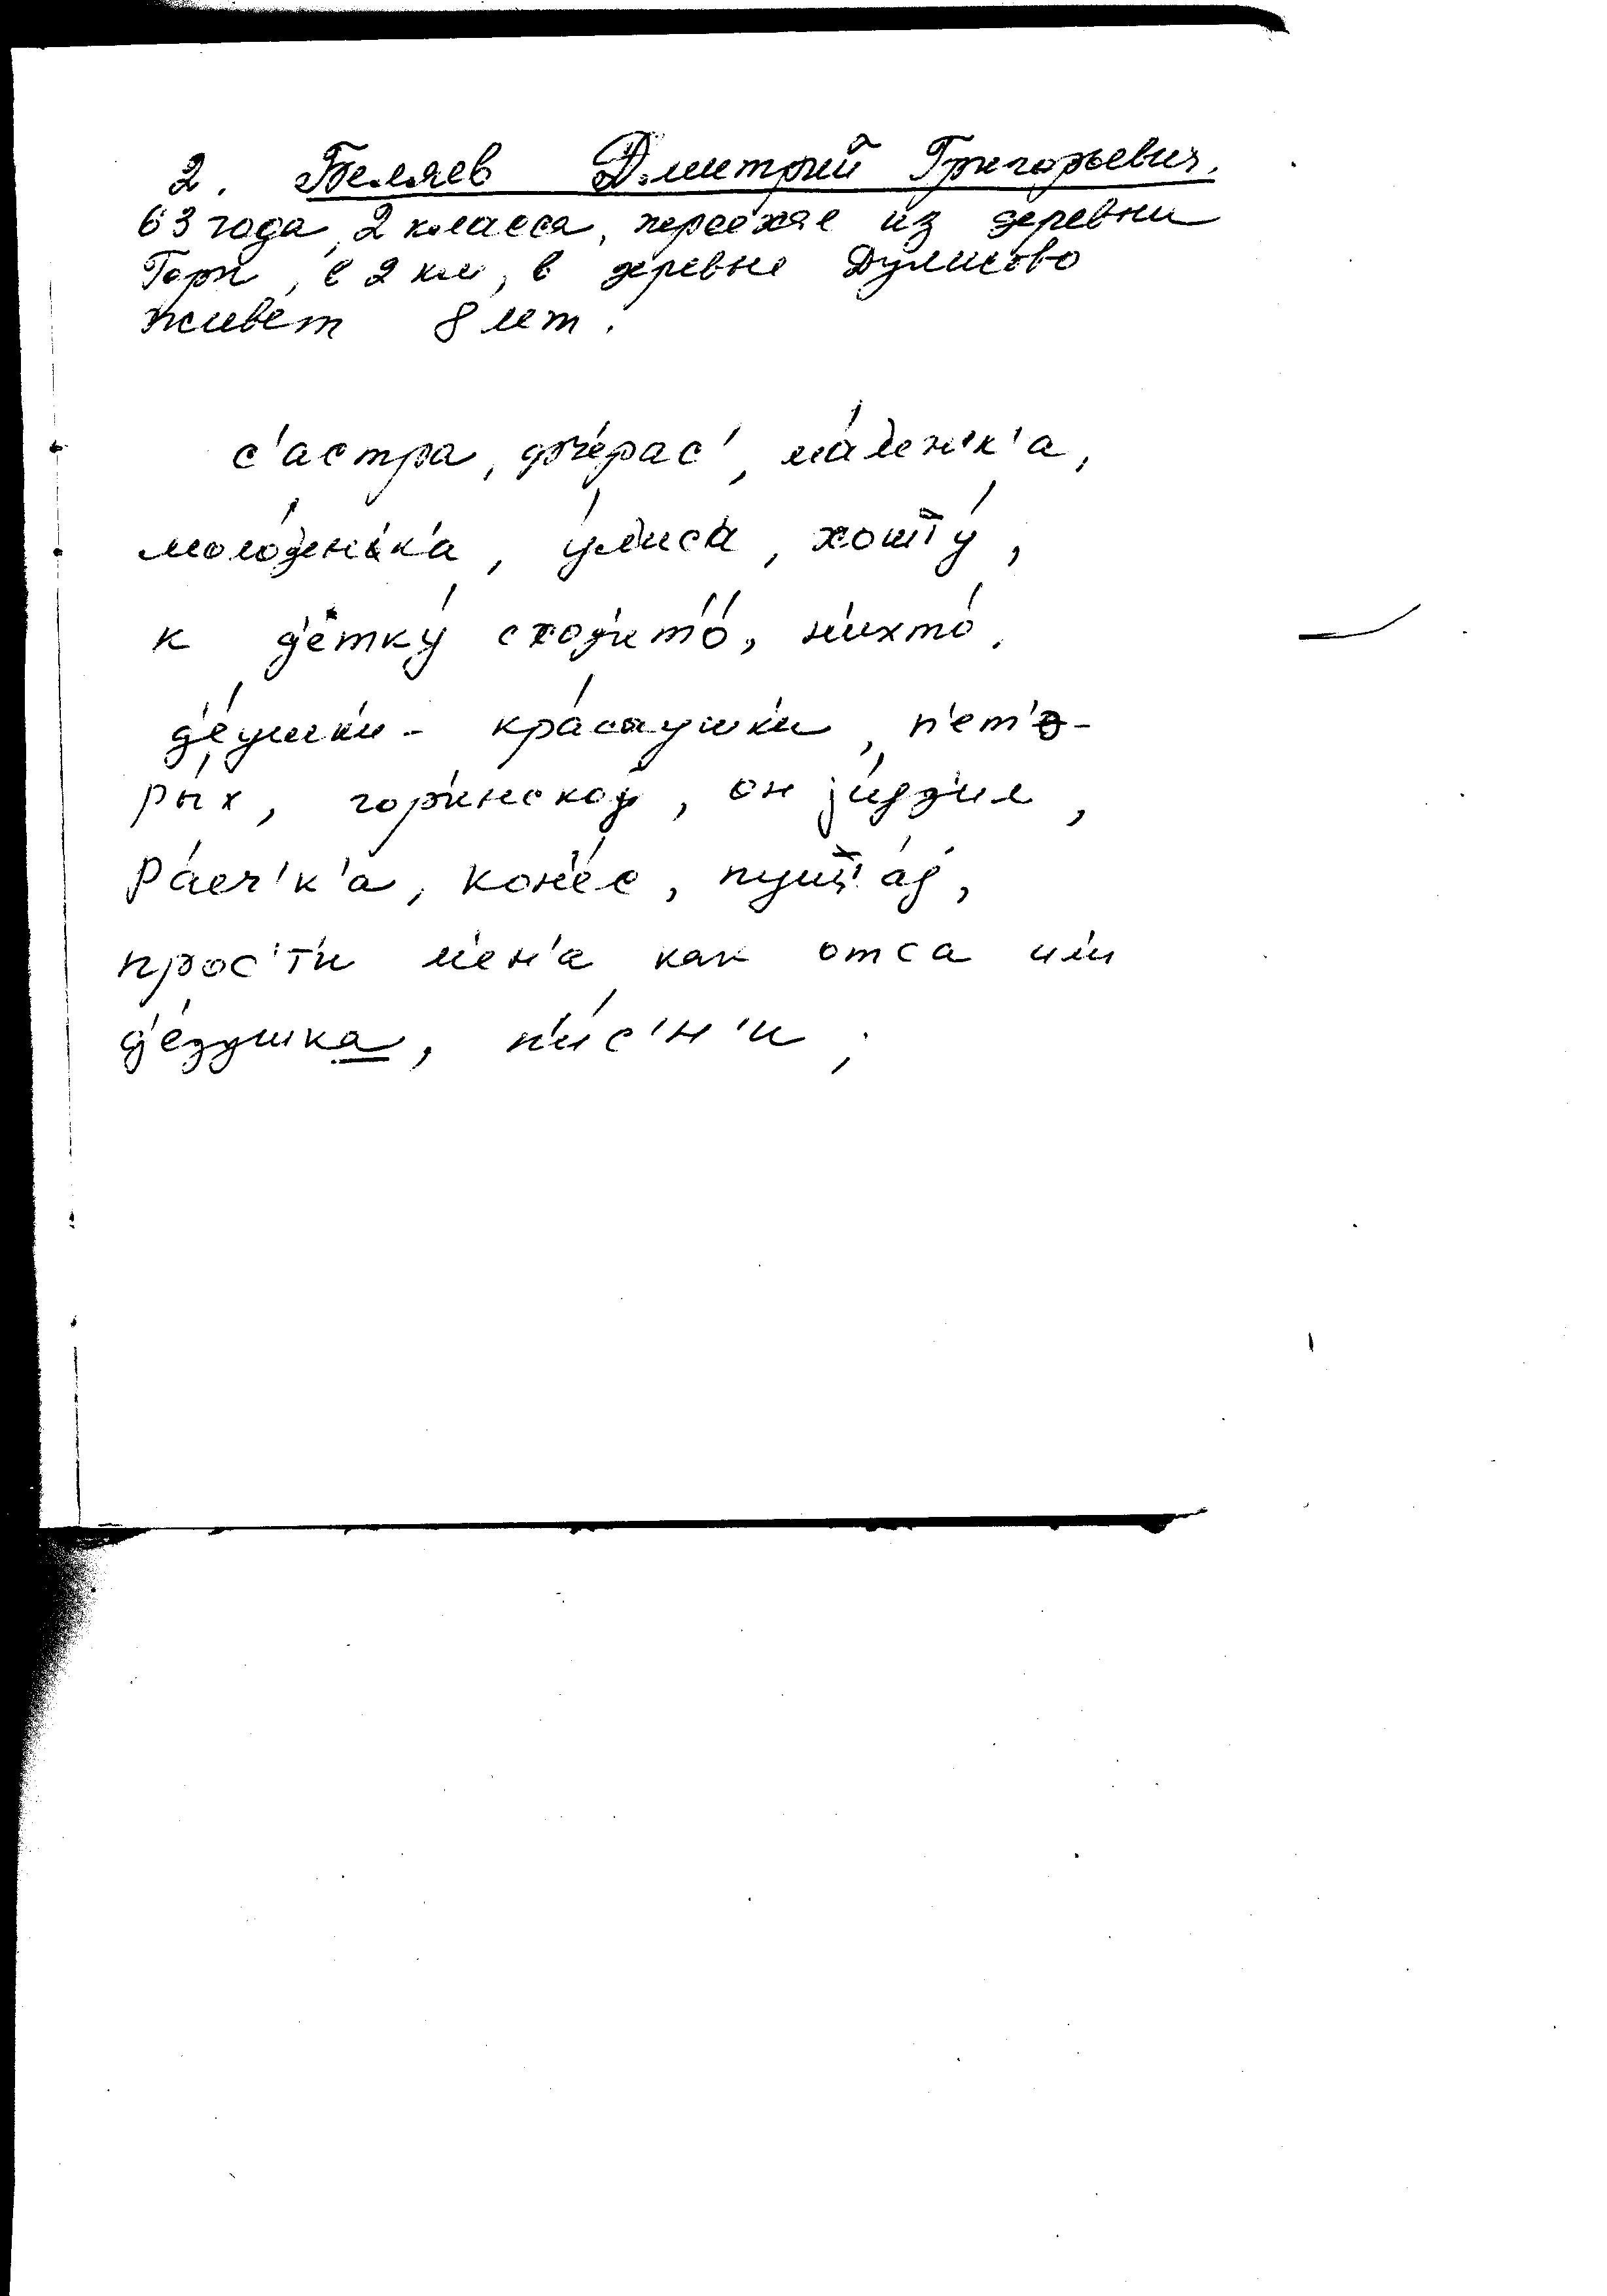 2. Беляев Дмитрий Григорьевич.
63 года, 2 класса, переехал из деревни
Горы, в 2 км, в деревне Дулисово
живёт 8 лет.
с'астра, дочерас', ма́лен'к'а,
моло́ден'к'а, у́лиса, хошт̄у́,
к д'е́тку́ сход'ит'о́, н'ихто́.
д'е́ушк'и - кра́саушк'и, п'ет'о-
ры́х, гор'инскоj, он jи́здил,
Ра́еч'к'а, кон'е́с, пушт̄'аj,
прос'т'и м'ен'а как отса ил'и
д'е́душка, п'и́с'н'и,